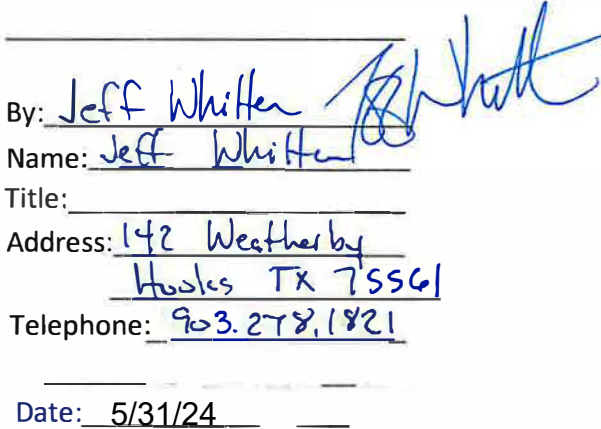 By: Jeff Whitten
Name: Jeff Whitten
Title:
Address: 142 Weatherby
Hooks TX 75561
Telephone: 903.278.1821
Date: 5/31/24